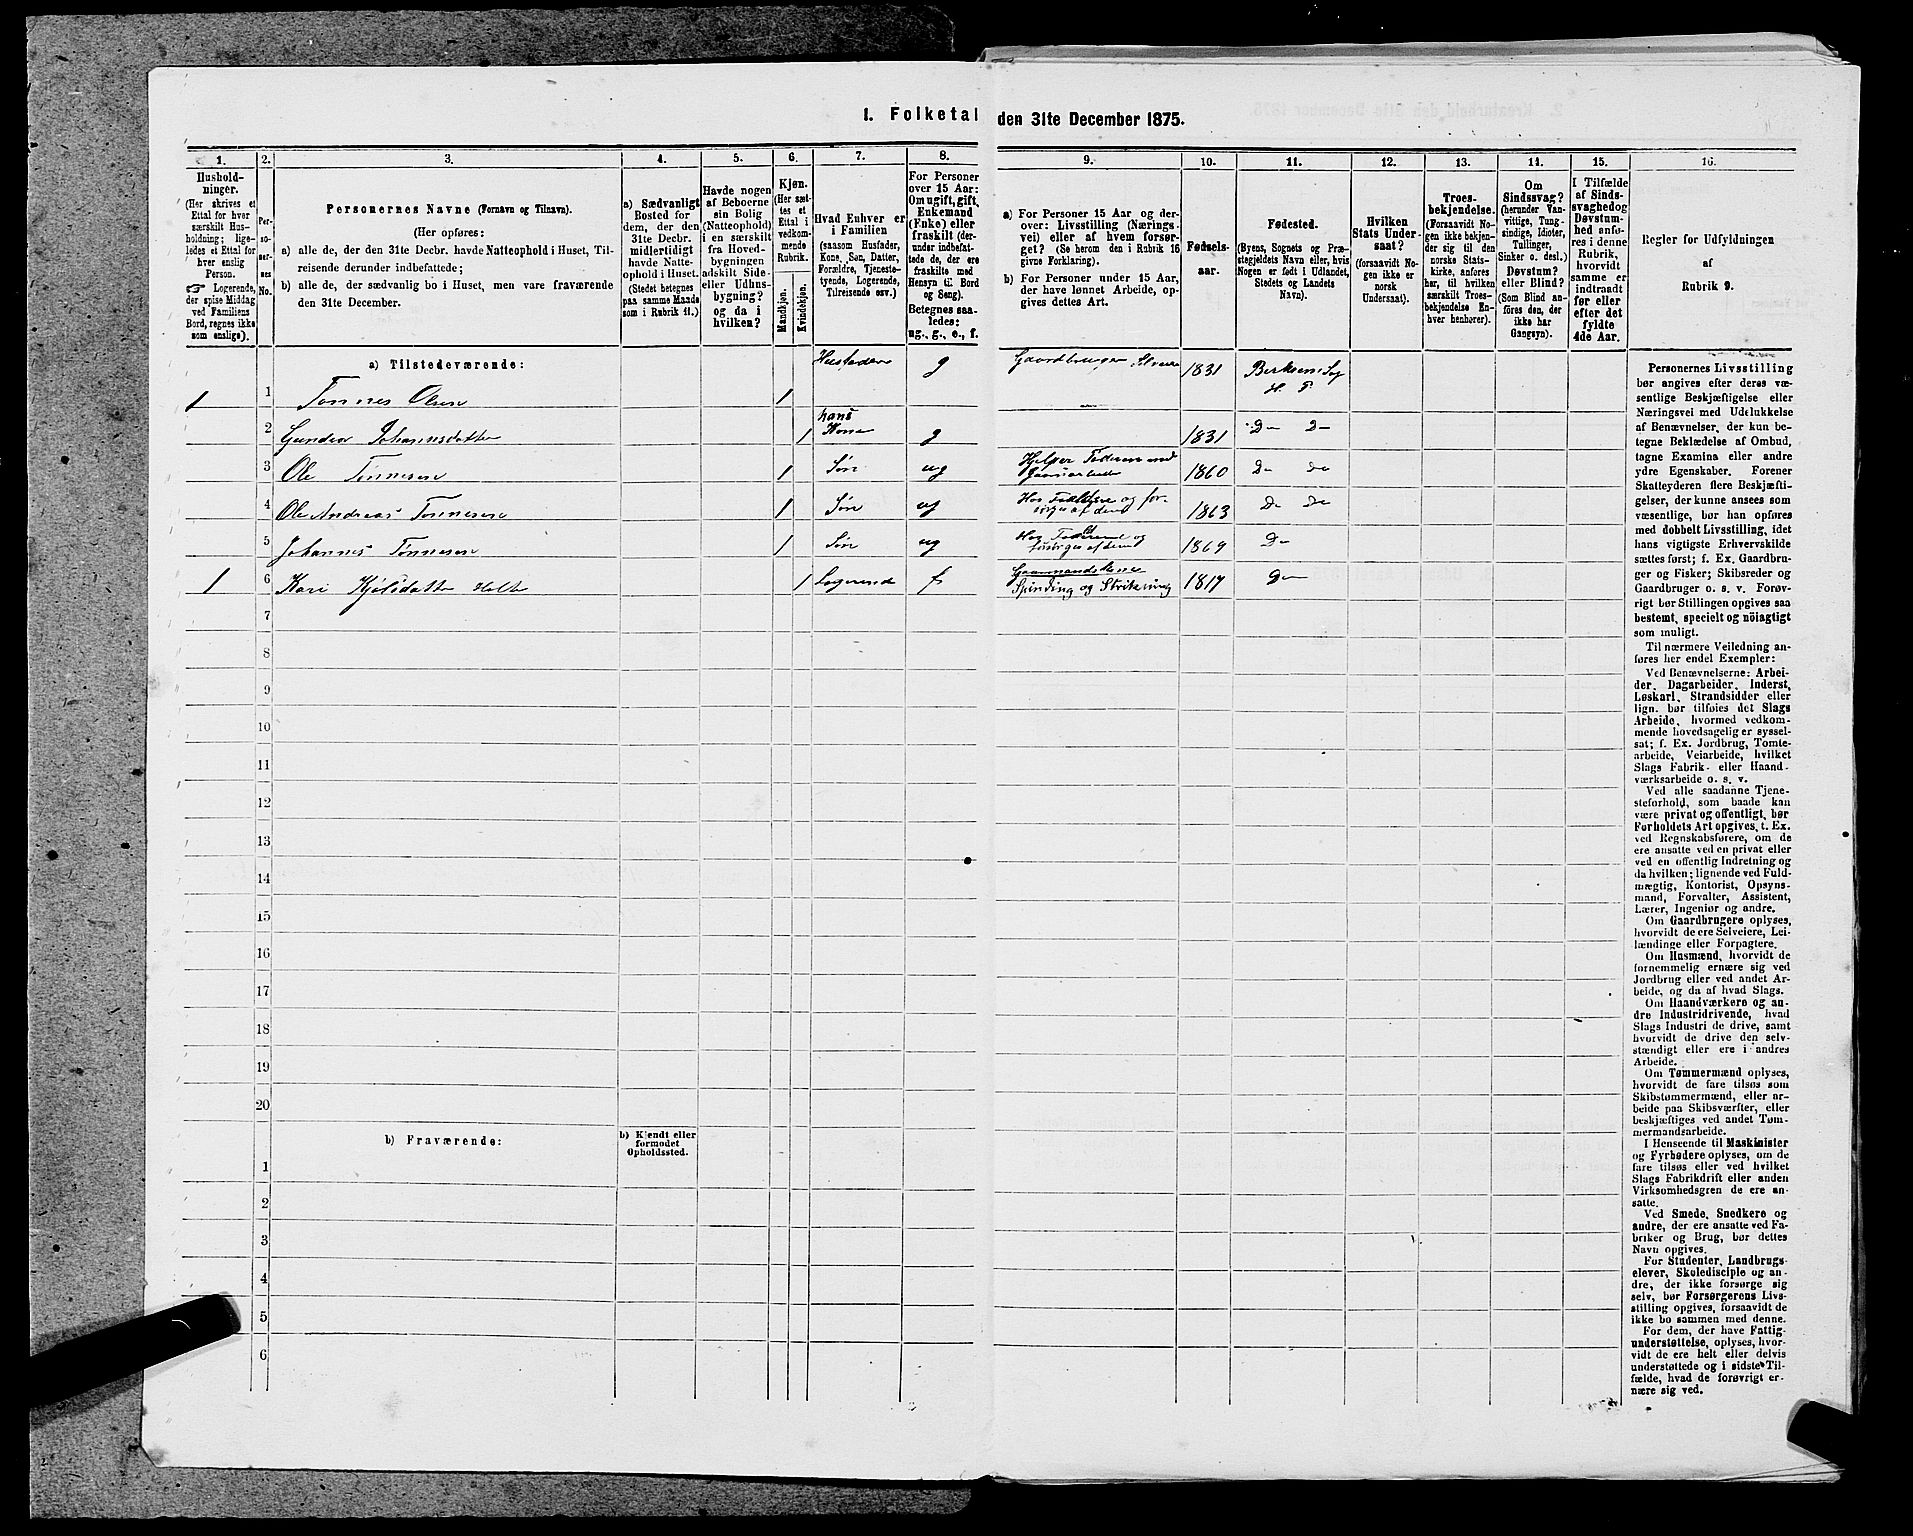 1. Folketal den 31te December 1875.
1.
2.
3.
4.
5.
6.
7.
8.
9.
10.
11.
12.
13.
14.
15.
16.
Hushold-
ninger.
(Her skrives et
Ettal for hver
særskilt Hus-
holdning; lige-
ledes et Ettal for
hver enslig
Person.
☞ Logerende,
der spise Middag
ved Familiens
Bord, regnes ikke
som enslige).
Per-
so-
ner-
nes
No.
Personernes Navne (Fornavn og Tilnavn).
(Her opføres:
a) alle de, der den 31te Decbr. havde Natteophold i Huset, Til-
reisende derunder indbefattede;
b) alle de, der sædvanlig bo i Huset, men vare fraværende
den 31te December.
a) Sædvanligt
Bosted for
dem, der den
31te Decbr.
midlertidigt
havde Natte-
ophold i Huset.
(Stedet betegnes
paa samme Maade
som i Rubrik 11.)
Havde nogen
af Beboerne
sin Bolig
(Natteophold)
i en særskilt
fra Hoved-
bygningen
adskilt Side-
eller Udhus-
bygning?
og da i
hvilken?
Kjøn.
(Her sæt-
tes et
Ettal i
vedkom-
mende
Rubrik.
Mandkjøn.
Kvindekjøn.
Hvad Enhver er
i Familien
(saasom Husfader,
Kone, Søn, Datter,
Forældre, Tjeneste-
tyende, Logerende,
Tilreisende osv.)
For Personer
over 15 Aar:
Om ugift, gift,
Enkemand
(Enke) eller
fraskilt (der-
under indbefat-
tede de, der ere
fraskilte med
Hensyn til Bord
og Seng).
Betegnes saa-
ledes:
ug., g., e., f.
a) For Personer 15 Aar og der-
over: Livsstilling (Nærings-
vei) eller af hvem forsør-
get? (Se herom den i Rubrik 16
givne Forklaring).
b) For Personer under 15 Aar,
der have lønnet Arbeide, op-
gives dettes Art.
Fødsels-
aar.
Fødested.
(Byens, Sognets og Præ-
stegjeldets Navn eller, hvis
Nogen er født i Udlandet,
Stedets og Landets
Navn).
Hvilken
Stats Under-
saat?
(forsaavidt No-
gen ikke er
norsk
Undersaat).
Troes-
bekjendelse.
(Forsaavidt No-
gen ikke bekjen-
der sig til den
norske Stats-
kirke, anføres
her, til hvilken
særskilt Troes-
bekjendelse En-
hver henhører).
Om
Sindssvag?
(herunder Van-
vittige, Tung-
sindige, Idioter,
Tullinger,
Sinker o. desl.)
Døvstum?
eller Blind?
(Som Blind an-
føres den, der
ikke har
Gangsyn).
I Tilfælde
af Sinds-
svaghed og
Døvstum-
hed anfø-
res i denne
Rubrik,
hvorvidt
samme er
indtraadt
før eller
efter det
fyldte
4de Aar.
Regler for Udfyldningen
af
Rubrik 9.
a) Tilstedeværende:
1 1 Tønnes Olsen 1 Husfader g Gaardbruger Selveier 1831 Berksens Sog
H. P
2 Gundvor Johannsdatter 1 hans
Kone g 1831 Do Do
3 Ole Tønnesen 1 Søn ug Hjelper Faderen med
Gaardarbeide 1860 Do Do
4 Ole Andreas Tønnesen 1 Søn ug Hos Forældrene og for-
sørges af dem 1863 Do Do
5 Johannes Tønnesen 1 Søn ug Hos Forældrene og
forsørges af dem 1869 Do
1 6 Kari Kjølsdatter Holte 1 Logerende f Gaardmandskone
Spinding og Strikning 1817 Do
7
8
9
10
11
12
13
14
15
16
17
18
19
20
b) Fraværende:
b) Kjendt eller
formodet
Opholdssted.
1
2
3
4
5
6
Personernes Livsstilling
bør angives efter deres væ-
sentlige Beskjæftigelse eller
Næringsvei med Udelukkelse
af Benævnelser, der kun be-
tegne Beklædelse af Ombud,
tagne Examina eller andre
ydre Egenskaber. Forener
Skatteyderen flere Beskjæfti-
gelser, der kunne ansees som
væsentlige, bør han opføres
med dobbelt Livsstilling, idet
hans vigtigste Erhvervskilde
sættes først; f. Ex. Gaardbru-
ger og Fisker; Skibsreder og
Gaardbruger o. s. v. Forøv-
rigt bør Stillingen opgives saa
bestemt, specielt og nöiagtigt
som muligt.
Til nærmere Veiledning an-
føres her endel Exempler:
Ved Benævnelserne: Arbei-
der, Dagarbeider, Inderst,
Løskarl, Strandsidder eller
lign. bør tilføies det Slags
Arbeide, hvormed vedkom-
mende hovedsagelig er syssel-
sat; f. Ex. Jordbrug, Tomte-
arbeide, Veiarbeide, hvilket
Slags Fabrik- eller Haand-
værksarbeide o. s. v.
Ved alle saadanne Tjene-
steforhold, som baade kan
være privat og offentligt, bør
Forholdets Art opgives, t. Ex.
ved Regnskabsførere, om de
ere ansatte ved en privat eller
ved en offentlig Indretning og
da hvilken; lignende ved Fuld-
mægtig, Kontorist, Opsyns-
mand, Forvalter, Assistent,
Lærer, Ingeniør og andre.
Om Gaardbrugere oplyses,
hvorvidt de ere Selveiere, Lei-
lændinge eller Forpagtere.
Om Husmænd, hvorvidt de
fornemmelig ernære sig ved
Jordbrug eller ved andet Ar-
beide, og da af hvad Slags.
Om Haandværkere og an-
dre Industridrivende, hvad
Slags Industri de drive, samt
hvorvidt de drive den selv-
stændigt eller ere i andres
Arbeide.
Om Tømmermænd oplyses,
hvorvidt de fare tilsøs som
Skibstømmermænd, eller ar-
beide paa Skibsværfter, eller
beskjæftiges ved andet Tøm-
mermandsarbeide.
I Henseende til Maskinister
og Fyrbødere oplyses, om de
fare tilsøs eller ved hvilket
Slags Fabrikdrift eller anden
Virksomhedsgren de ere an-
satte.
Ved Smede, Snedkere og
andre, der ere ansatte ved Fa-
briker og Brug, bør dettes
Navn opgives.
For Studenter, Landbrugs-
elever, Skoledisciple og an-
dre, der ikke forsørge sig
selv, bør Forsørgerens Livs-
stilling opgives, forsaavidt de
ikke bo sammen med denne.
For dem, der have Fattig-
understøttelse, oplyses, hvor-
vidt de ere helt eller delvis
understøttede og i sidste Til-
fælde, hvad de forøvrigt er-
nære sig ved.